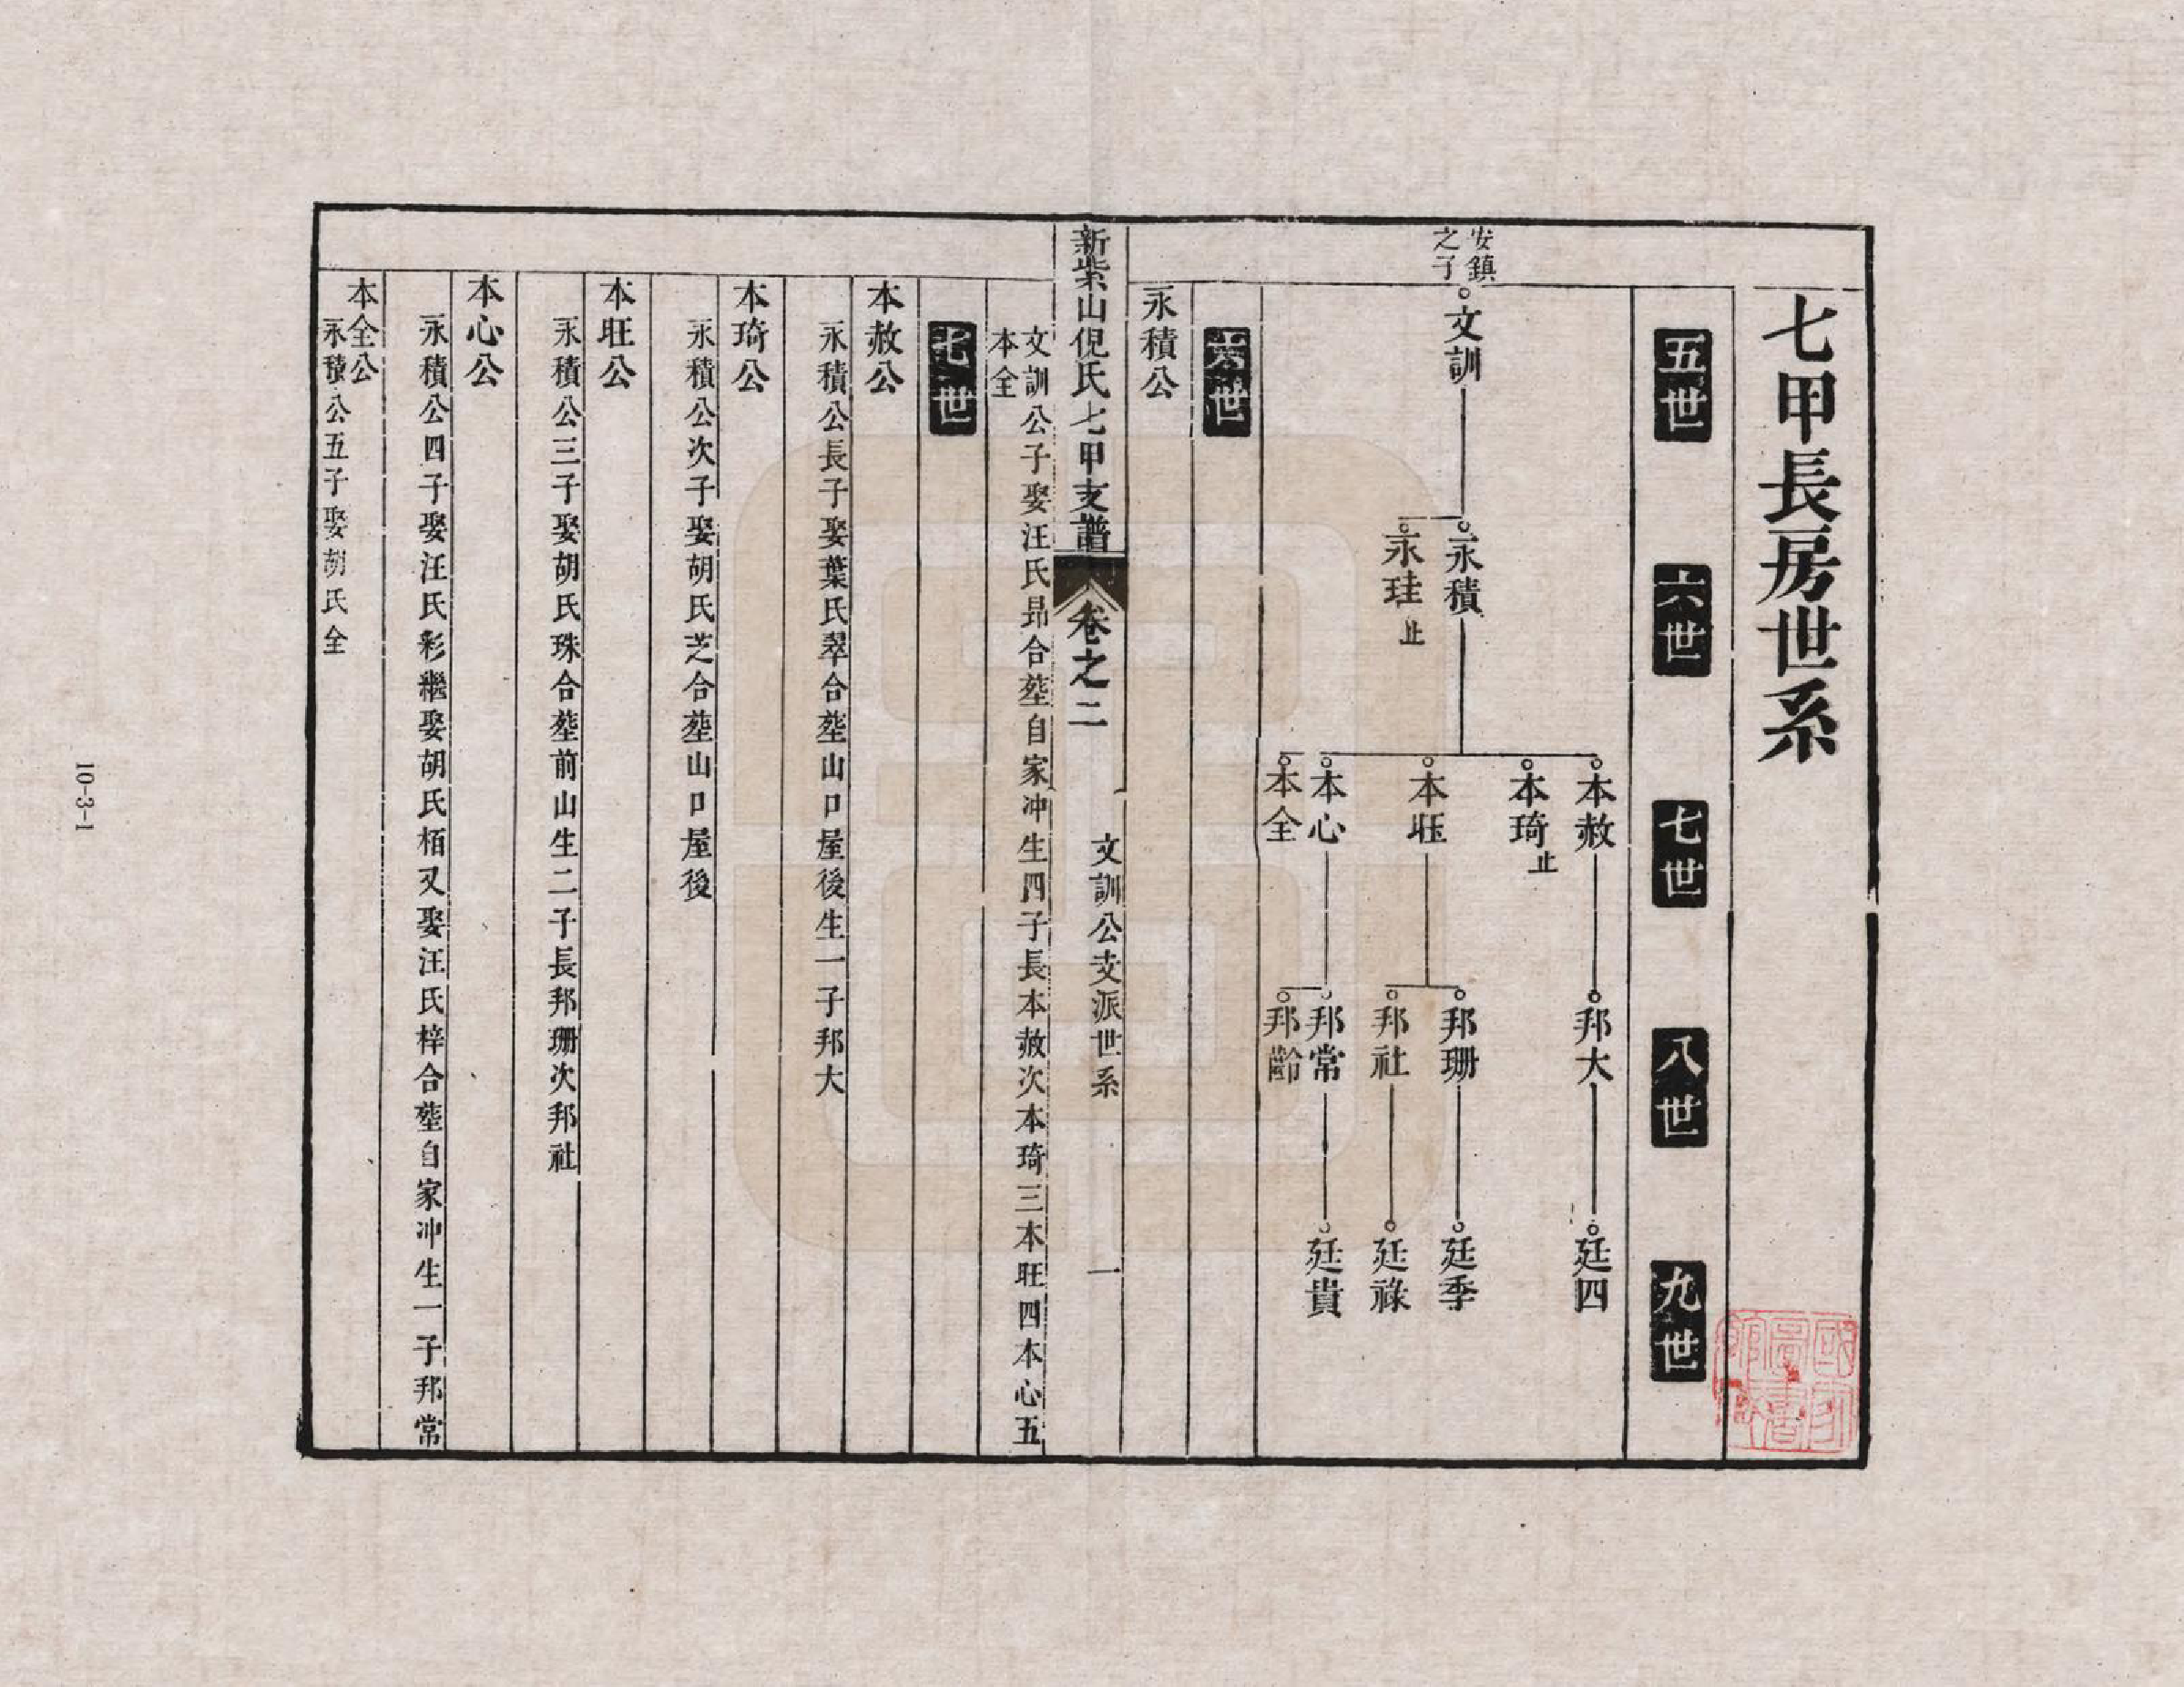 七甲長房世系
五世
六世
七世
八世
九世
安鎮之子
文訓
永積
永珪止
本赦
本琦止
本旺
本心
本全
邦大
邦珊
邦社
邦常
邦齡
廷四
廷季
廷祿
廷貴
六世
永積公
新紫山倪氏七甲支譜
卷之二
文訓公支派世系
一
文訓公子娶汪氏昻合塟自家冲生四子長本赦次本琦三本旺四本心五
本全
七世
本赦公
永積公長子娶葉氏翠合塟山口屋後生一子邦大
本琦公
永積公次子娶胡氏芝合塟山口屋後
本旺公
永積公三子娶胡氏珠合塟前山生二子長邦珊次邦社
本心公
永積公四子娶汪氏彩繼娶胡氏栢又娶汪氏梓合塟自家冲生一子邦常
本全公
永積公五子娶胡氏全
10-3-1